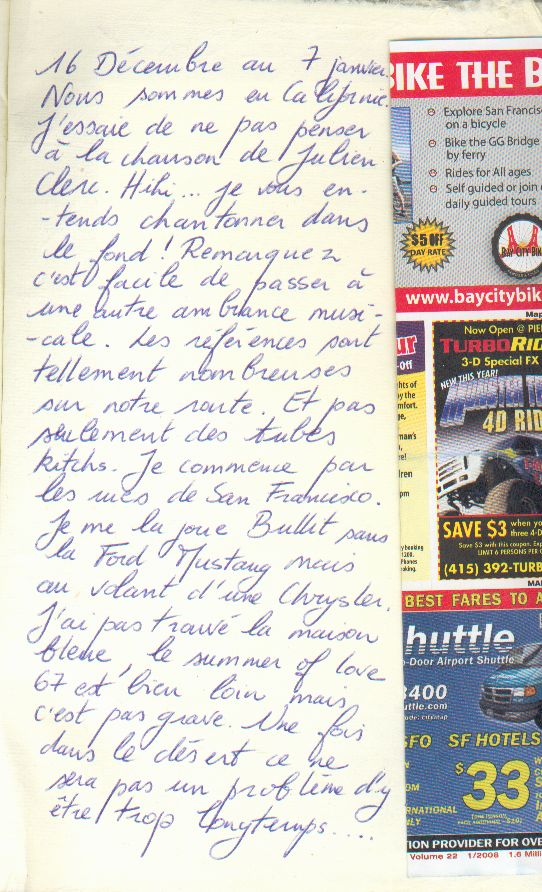 16 Décembre au 7 janvier.
Nous sommes en Californie.
J'essaie de ne pas penser
à la chanson de Julien
Clerc. Hihi... je vous en-
-tends chantonner dans
le fond ! Remarquez
c'est facile de passer à
une autre ambiance musi-
-cale. Les références sont
tellement nombreuses
sur notre route. Et pas
seulement des tubes
kitchs. Je commence par
les rues de San Francisco.
Je me la joue Bullit sans
la Ford Mustang mais
au volant d'une Chrysler.
J'ai pas trouvé la maison
bleue, le summer of love
67 est bien loin mais
c'est pas grave. Une fois
dans le désert ce ne
sera pas un problème d'y
être trop longtemps.....
IKE THE B
Explore San Francis
on a bicycle
Bike the GG Bridge
by ferry
Rides for All ages
Self guided or join
daily guided tours
$5 OFF
DAY RATE
BAY CITY BIK
www.baycitybik
Map
ur
-off
Now Open @ PIE
TURBO RID
3-D Special FX
NEW THIS YEAR!
4D RID
SAVE $3 when yo
three 4-D
Save $3 with this coupon. Exp
LIMIT 6 PERSONS PER
(415) 392-TURB
MA
BEST FARES TO A
huttle
o-Door Airport Shuttle
3400
uttle.com
ode: citymap
SFO SF HOTELS
$33
RNATIONAL
NLY
ION PROVIDER FOR OVE
Volume 22 1/2008 1.6 Milli